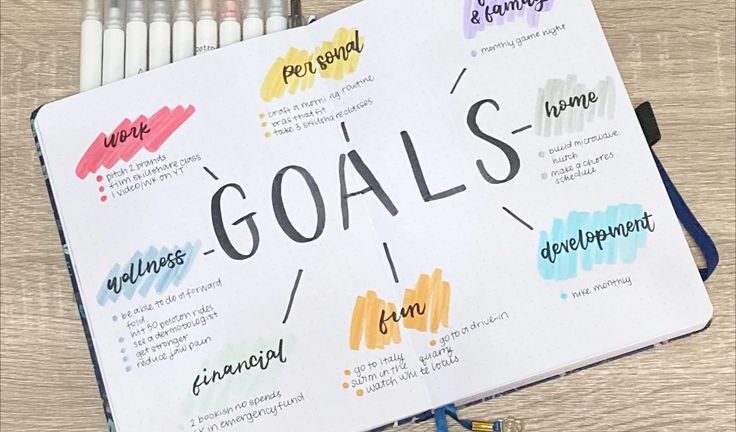 GOALS
personal
craft a morning routine
bras that fit
take 3 skillshare classes
& family
monthly game night
work
pitch 2 brands
film skillshare class
1 video/wk on YT
home
build microwave
hutch
make a chores
schedule
wellness
be able to do a forward
fold
hit 50 peloton rides
see a dermatologist
get stronger
reduce jaw pain
development
hike monthly
fun
go to Italy
swim in the quarry
watch white lotus
go to a drive-in
financial
2 bookish no spends
in emergency fund